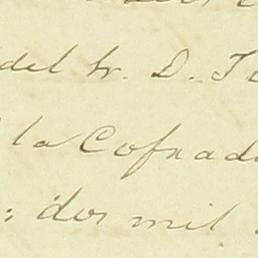 del Sr. D. J
la Cofrad
: dos mil